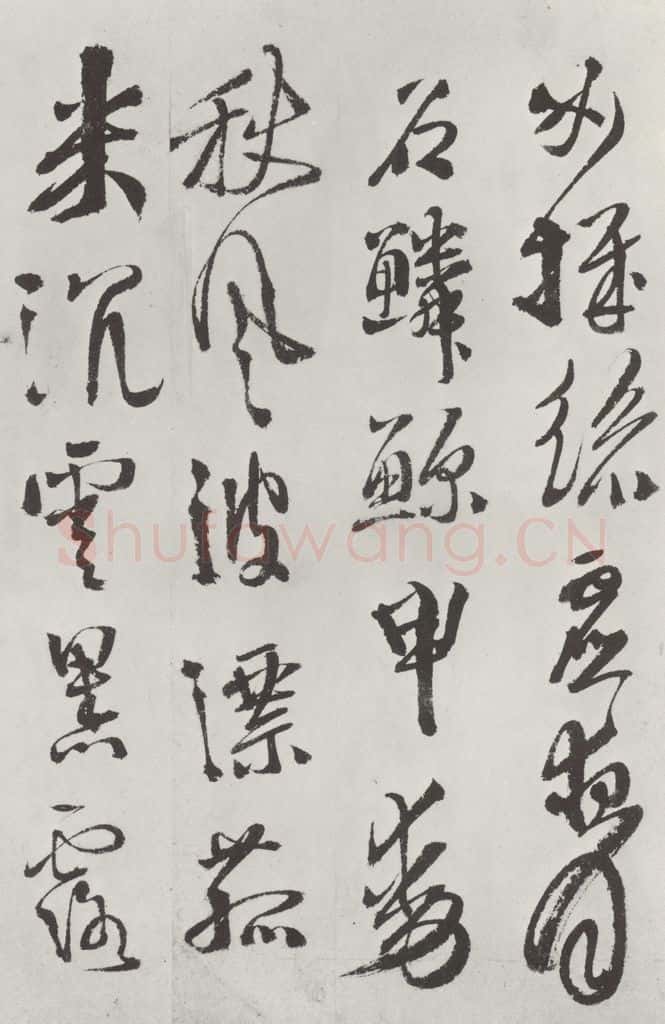 女機絲虛夜月
石鱗鯨甲動
秋風波漂菰
米沉雲黑露
Shufawang.CN